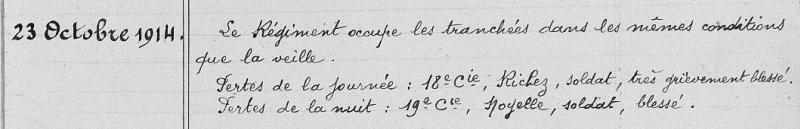 23 Octobre 1914. Le Régiment occupe les tranchées dans les mêmes conditions
que la veille.
Pertes de la journée : 18e Cie, Richez, soldat, très grièvement blessé.
Pertes de la nuit : 19e Cie, Noyelle, soldat, blessé.